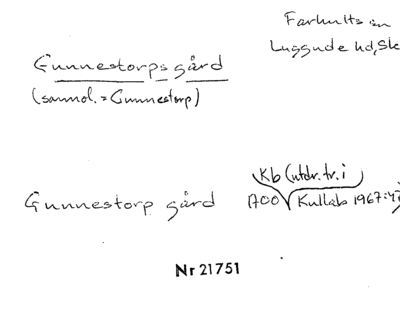 Farhults sn
Luggude hd, Sk
Gunnestorps gård
(sannol. = Gunnestorp)
Kb (utdr. tr. i
Gunnestorp gård 1700 Kullab 1967:47
Nr 21751